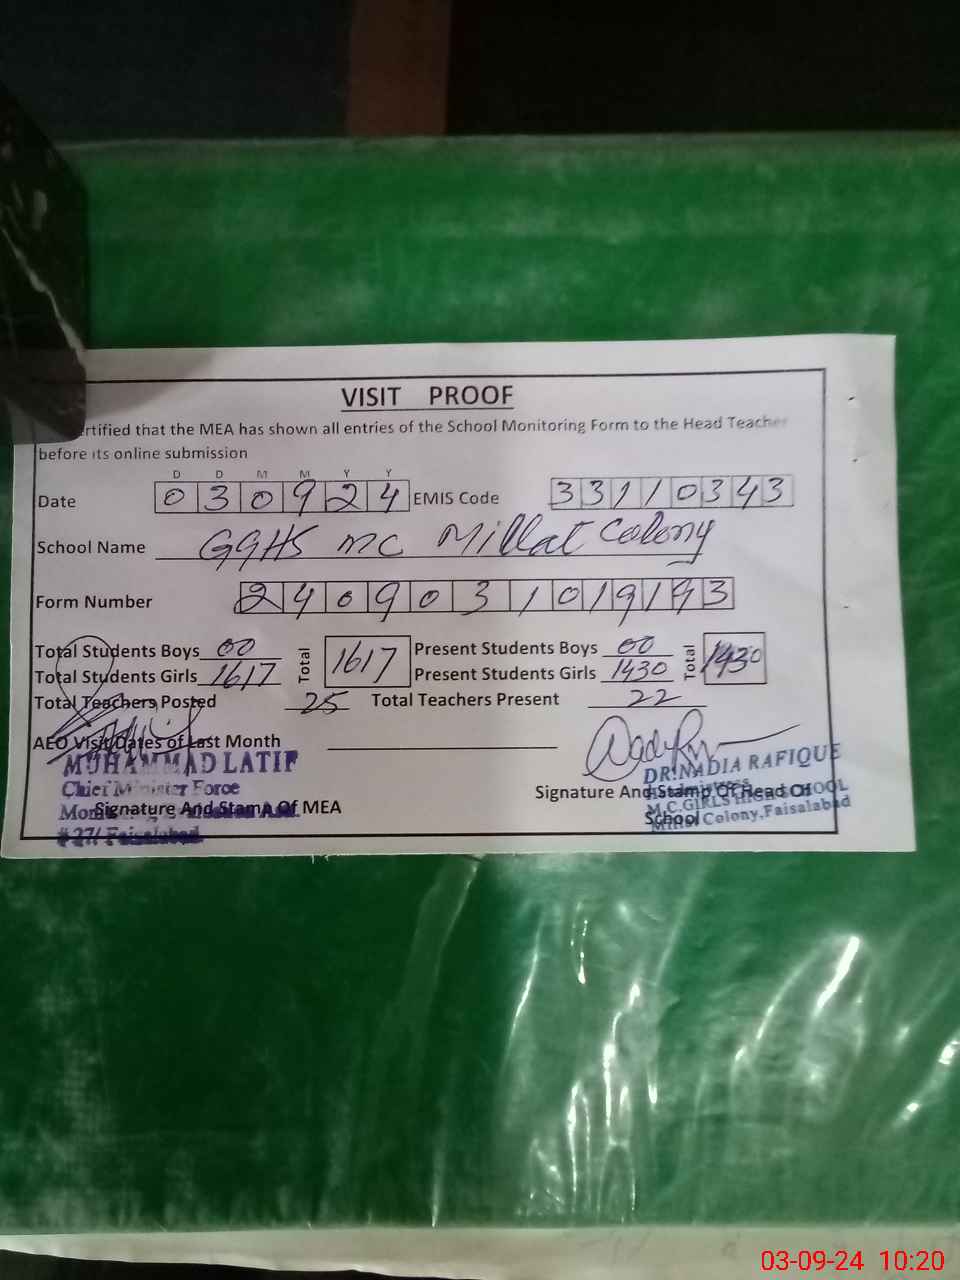 VISIT PROOF
ertified that the MEA has shown all entries of the School Monitoring Form to the Head Teacher
before its online submission
D D M M Y Y
Date 030924 EMIS Code 33110343
School Name GGHS MC Millat Colony
Form Number 240903101993
Total Students Boys 00 Total 1617 Present Students Boys 00 Total 1430
Total Students Girls 1617 Present Students Girls 1430
Total Teachers Posted 25 Total Teachers Present 22
AEO Visit Dates of Last Month
MUHAMMAD LATIF
Chief Minister Force
Signature And Stamp Of MEA
# 27/ Faisalabad
DR. NADIA RAFIQUE
Signature And Stamp Of Head Of
School
M.C. GIRLS HIGH SCHOOL
Millat Colony, Faisalabad
03-09-24 10:20